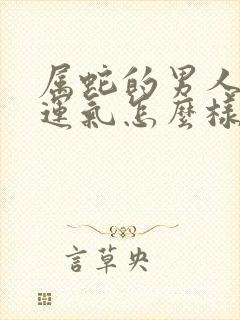 属蛇的男人
運氣怎麼樣
言草央